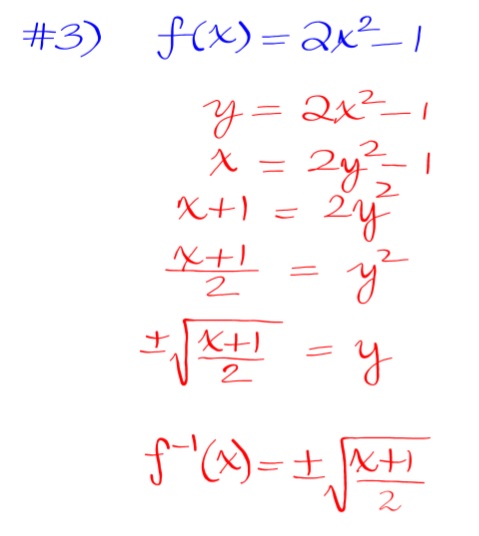 #3) f(x) = 2x² - 1
y = 2x² - 1
x = 2y² - 1
x+1 = 2y²
x+1/2 = y²
±√(x+1/2) = y
f⁻¹(x) = ±√(x+1/2)